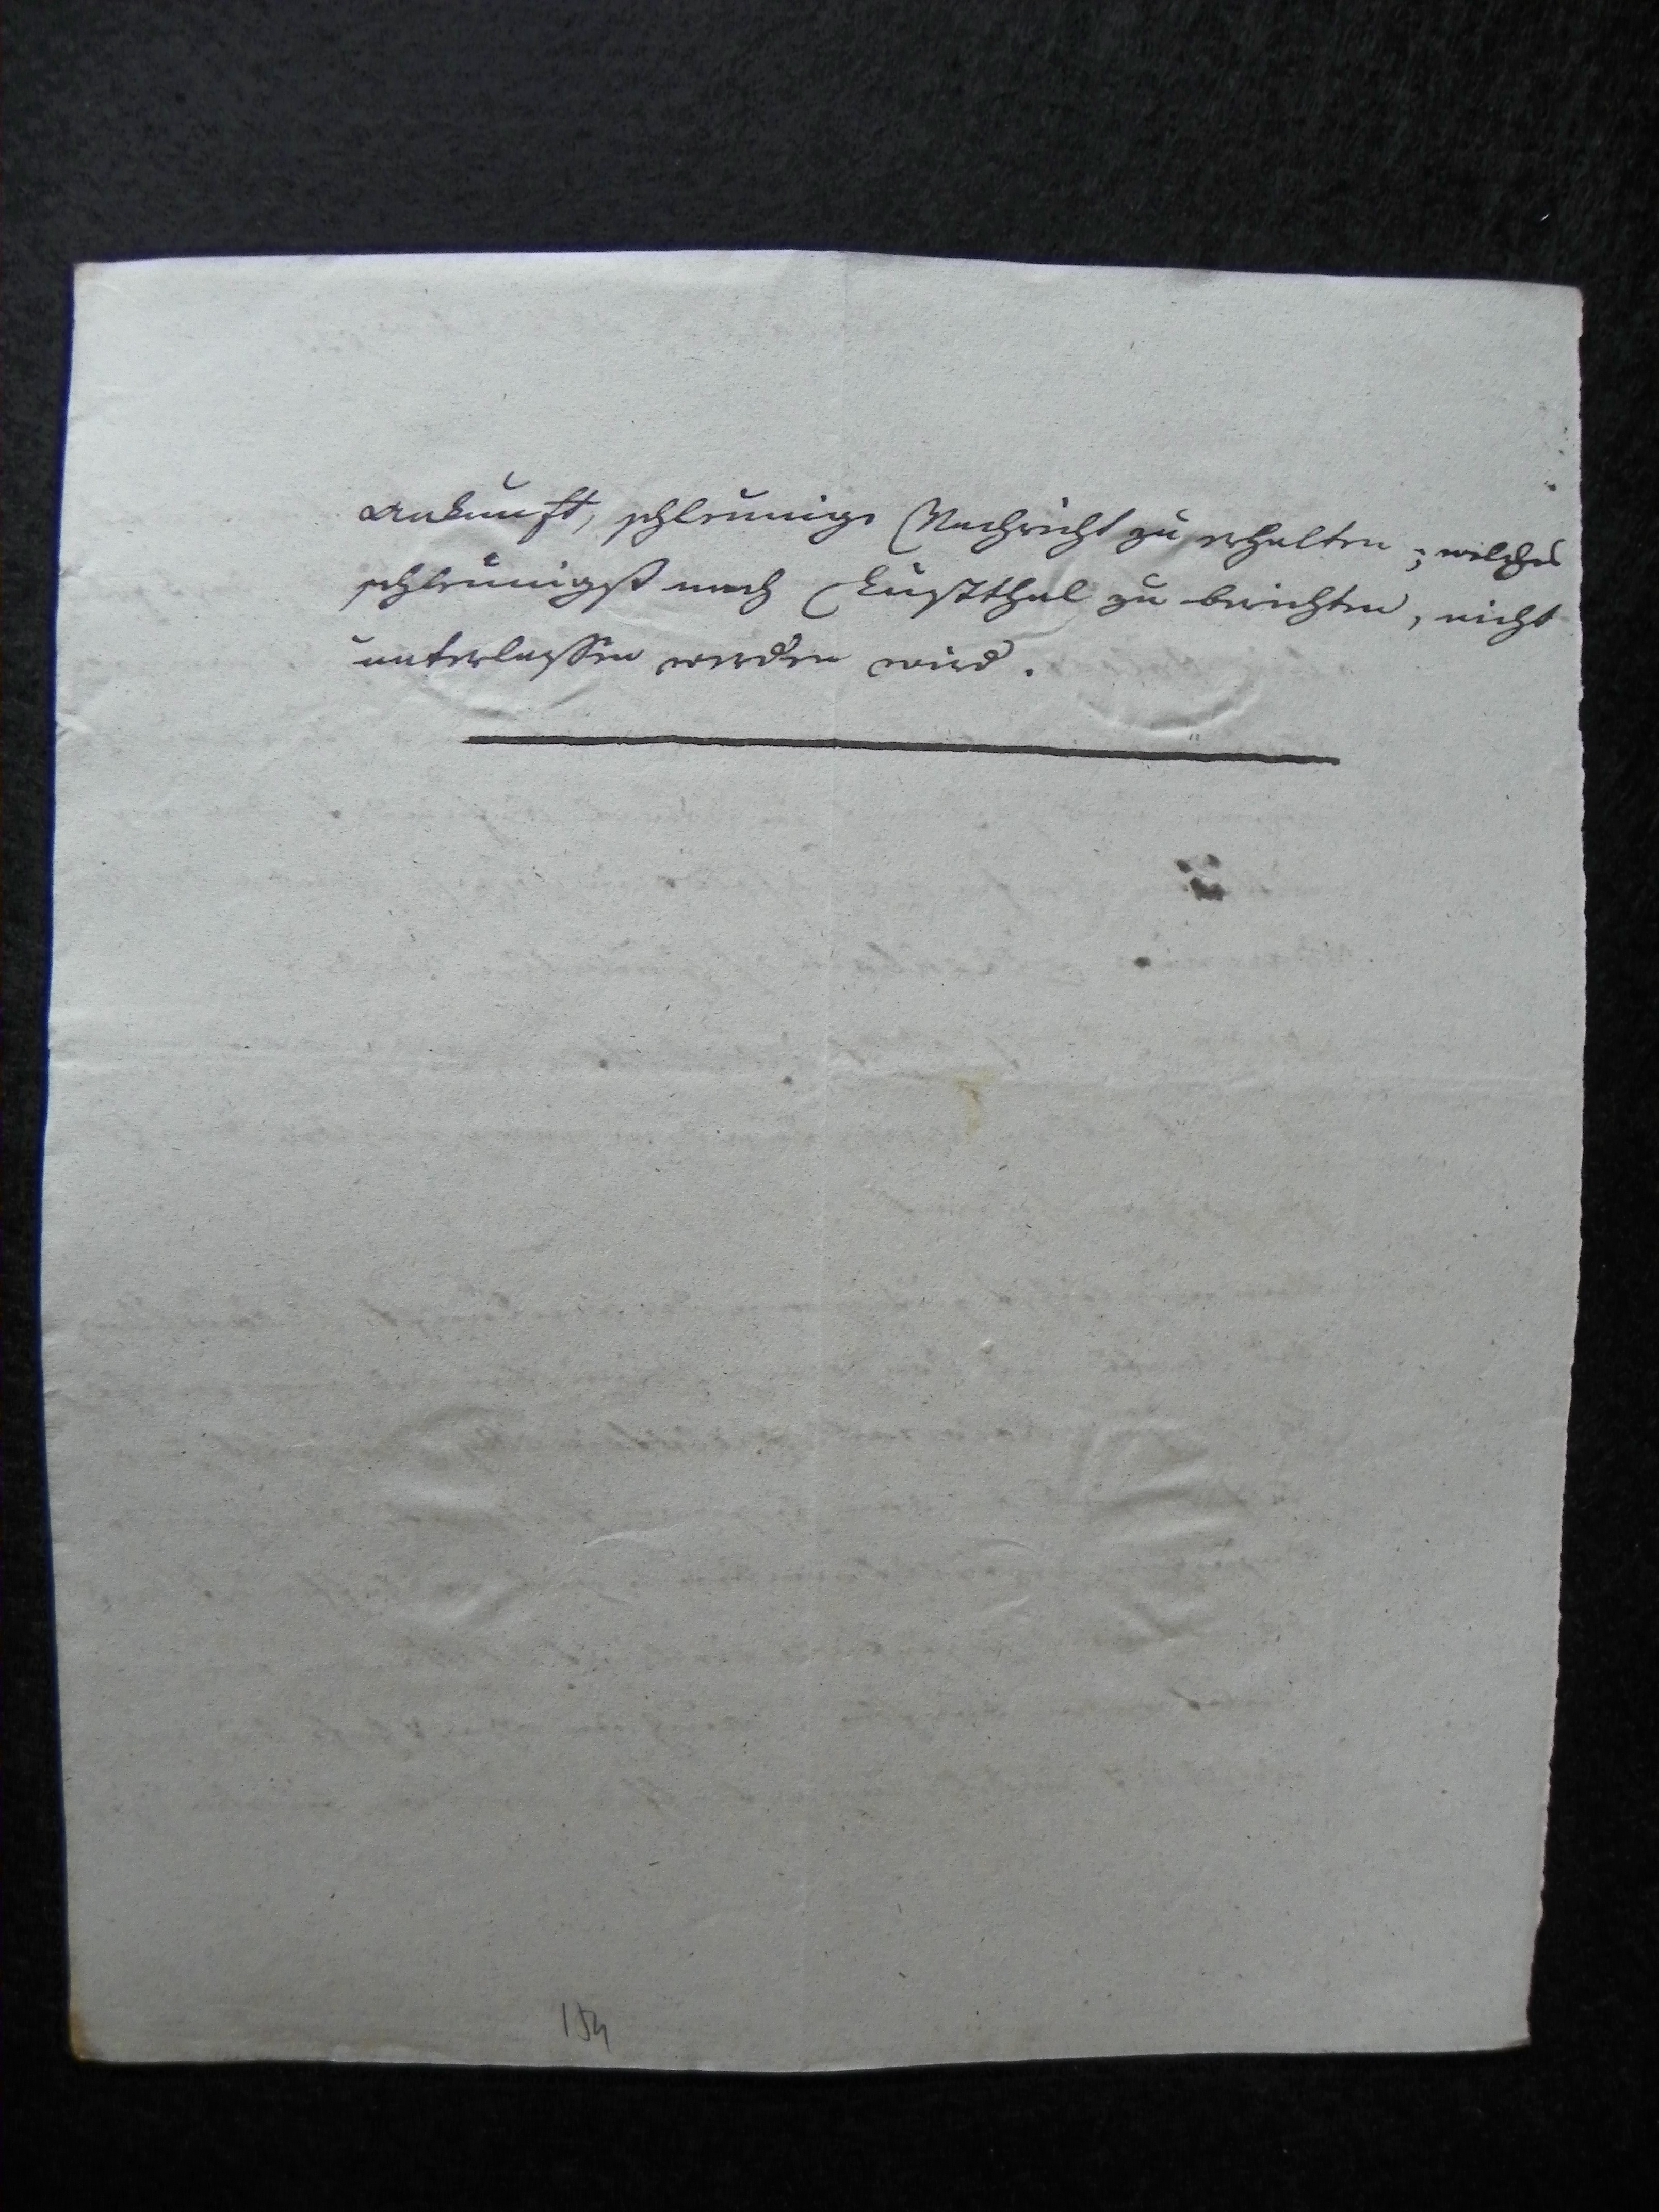 Ankunft, schleunige Nachricht zu erhalten; welches
schleunigst nach Lustthal zu berichten, nicht
unterlassen werden wird.
154